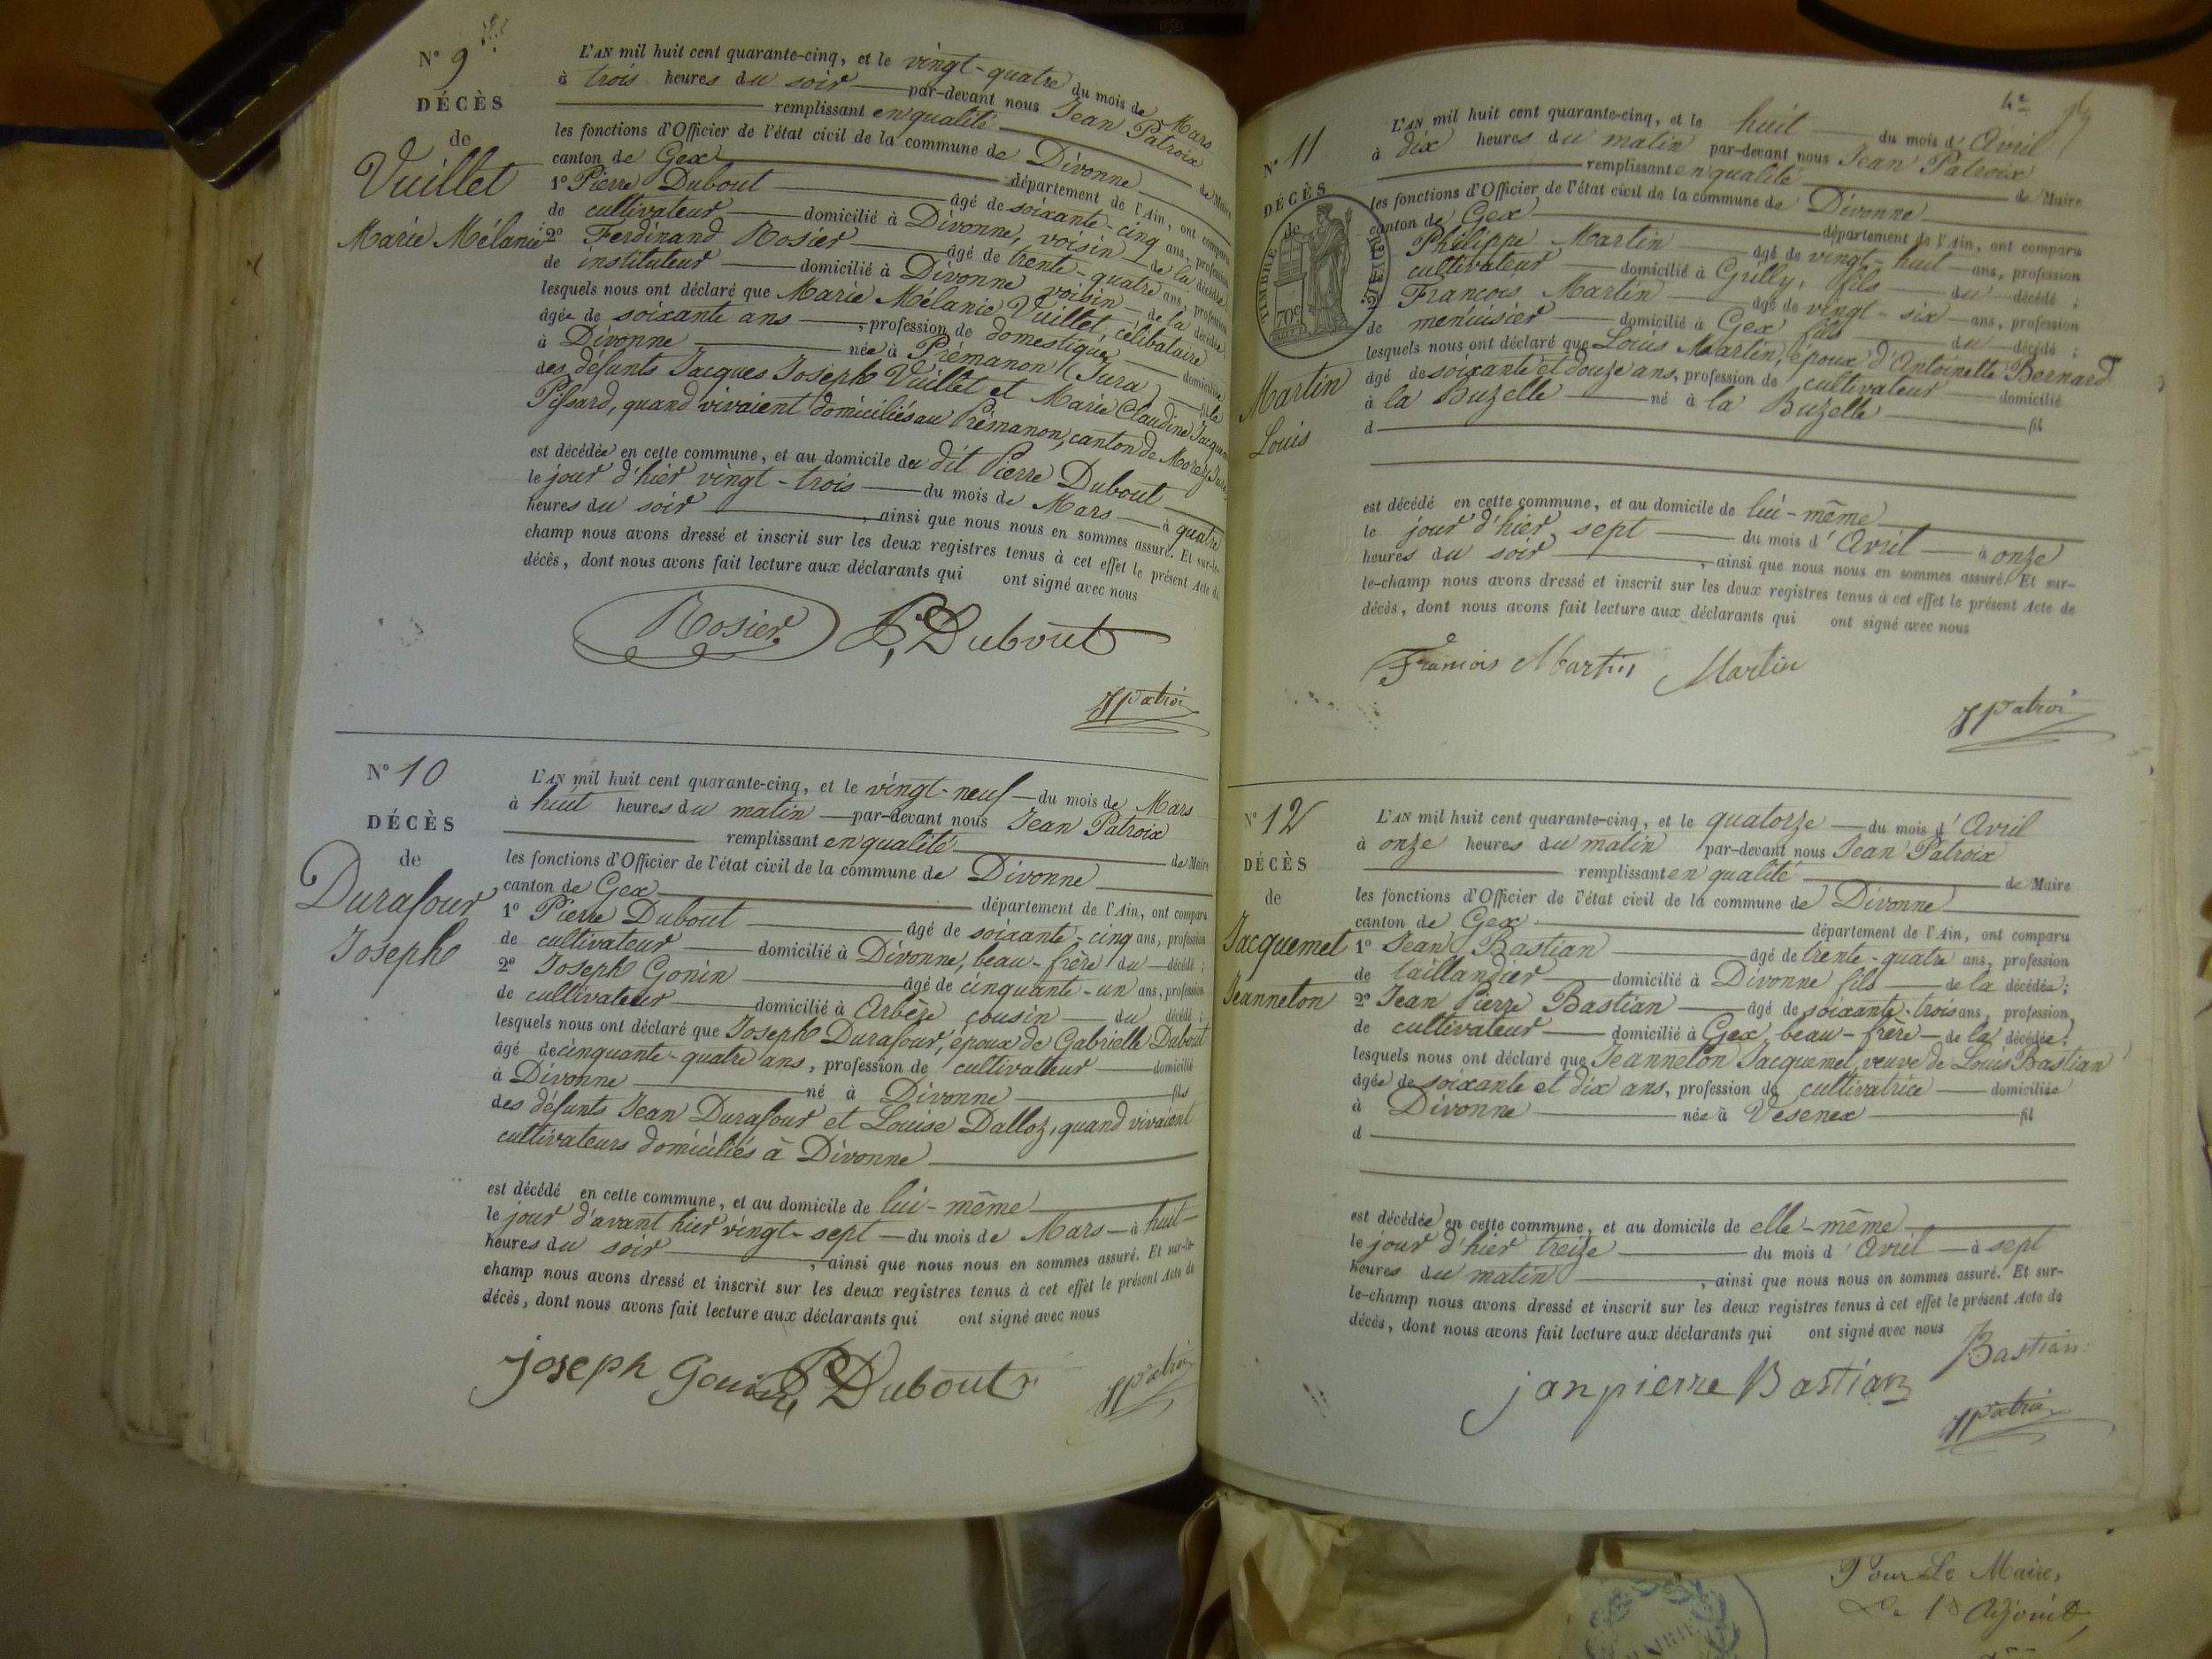 N° 9
DÉCÈS
de
Vuillet
Marie Mélanie
L'AN mil huit cent quarante-cinq, et le vingt-quatre du mois de Mars
à trois heures du soir par-devant nous Jean Patroix
remplissant en qualité de Maire
les fonctions d'Officier de l'état civil de la commune de Divonne
canton de Gex département de l'Ain, ont comparu
1° Pierre Dubout âgé de soixante-cinq ans, profession
de cultivateur domicilié à Divonne, voisin de la décédée
2° Ferdinand Rosier âgé de trente-quatre ans, profession
de instituteur domicilié à Divonne voisin de la décédée
lesquels nous ont déclaré que Marie Mélanie Vuillet, célibataire
âgée de soixante ans, profession de domestique domiciliée
à Divonne née à Prémanon (Jura) fille
des défunts Jacques Joseph Vuillet et Marie Claudine Jacquine
Pissard, quand vivaient domiciliés au Prémanon, canton de Morez, Jura
est décédée en cette commune, et au domicile du dit Pierre Dubout
le jour d'hier vingt-trois du mois de Mars à quatre
heures du soir, ainsi que nous nous en sommes assuré. Et sur-le-
champ nous avons dressé et inscrit sur les deux registres tenus à cet effet le présent Acte de
décès, dont nous avons fait lecture aux déclarants qui ont signé avec nous
Rosier P. Dubout
JPatroi
N° 10
DÉCÈS
de
Durafour
Joseph
L'AN mil huit cent quarante-cinq, et le vingt-neuf du mois de Mars
à huit heures du matin par-devant nous Jean Patroix
remplissant en qualité de Maire
les fonctions d'Officier de l'état civil de la commune de Divonne
canton de Gex département de l'Ain, ont comparu
1° Pierre Dubout âgé de soixante-cinq ans, profession
de cultivateur domicilié à Divonne, beau-frère du décédé ;
2° Joseph Gonin âgé de cinquante-un ans, profession
de cultivateur domicilié à Arbère cousin du décédé ;
lesquels nous ont déclaré que Joseph Durafour, époux de Gabrielle Dubout
âgé de cinquante-quatre ans, profession de cultivateur domicilié
à Divonne né à Divonne fils
des défunts Jean Durafour et Louise Dalloz, quand vivaient
cultivateurs domiciliés à Divonne
est décédé en cette commune, et au domicile de lui-même
le jour d'avant hier vingt-sept du mois de Mars à huit
heures du soir, ainsi que nous nous en sommes assuré. Et sur-le-
champ nous avons dressé et inscrit sur les deux registres tenus à cet effet le présent Acte de
décès, dont nous avons fait lecture aux déclarants qui ont signé avec nous
joseph Gonin P. Dubout JPatroi
4e
N° 11
DÉCÈS
de
TIMBRE ROYAL
70c
Martin
Louis
L'AN mil huit cent quarante-cinq, et le huit du mois d'Avril
à dix heures du matin par-devant nous Jean Patroix
remplissant en qualité de Maire
les fonctions d'Officier de l'état civil de la commune de Divonne
canton de Gex département de l'Ain, ont comparu
Philippe Martin âgé de vingt-huit ans, profession
cultivateur domicilié à Grilly, fils du décédé ;
François Martin âgé de vingt-six ans, profession
de menuisier domicilié à Gex fils du décédé ;
lesquels nous ont déclaré que Louis Martin, époux d'Antoinette Bernard
âgé de soixante et douze ans, profession de cultivateur domicilié
à la Buzelle né à la Buzelle fil
d
est décédé en cette commune, et au domicile de lui-même
le jour d'hier sept du mois d'Avril à onze
heures du soir, ainsi que nous nous en sommes assuré. Et sur-
le-champ nous avons dressé et inscrit sur les deux registres tenus à cet effet le présent Acte de
décès, dont nous avons fait lecture aux déclarants qui ont signé avec nous
François Martin Martin
JPatroi
N° 12
DÉCÈS
de
Jacquemet
Jeanneton
L'AN mil huit cent quarante-cinq, et le quatorze du mois d'Avril
à onze heures du matin par-devant nous Jean Patroix
remplissant en qualité de Maire
les fonctions d'Officier de l'état civil de la commune de Divonne
canton de Gex département de l'Ain, ont comparu
1° Jean Bastian âgé de trente-quatre ans, profession
de taillandier domicilié à Divonne fils de la décédée ;
2° Jean Pierre Bastian âgé de soixante-trois ans, profession
de cultivateur domicilié à Gex, beau-frère de la décédée ;
lesquels nous ont déclaré que Jeanneton Jacquemet, veuve de Louis Bastian
âgée de soixante et dix ans, profession de cultivatrice domiciliée
à Divonne née à Vesenex fil
d
est décédée en cette commune, et au domicile de elle-même
le jour d'hier treize du mois d'Avril à sept
heures du matin, ainsi que nous nous en sommes assuré. Et sur-
le-champ nous avons dressé et inscrit sur les deux registres tenus à cet effet le présent Acte de
décès, dont nous avons fait lecture aux déclarants qui ont signé avec nous
Bastian
janpierre Bastian
JPatroi
Pour Le Maire,
Le 1er Adjoint,